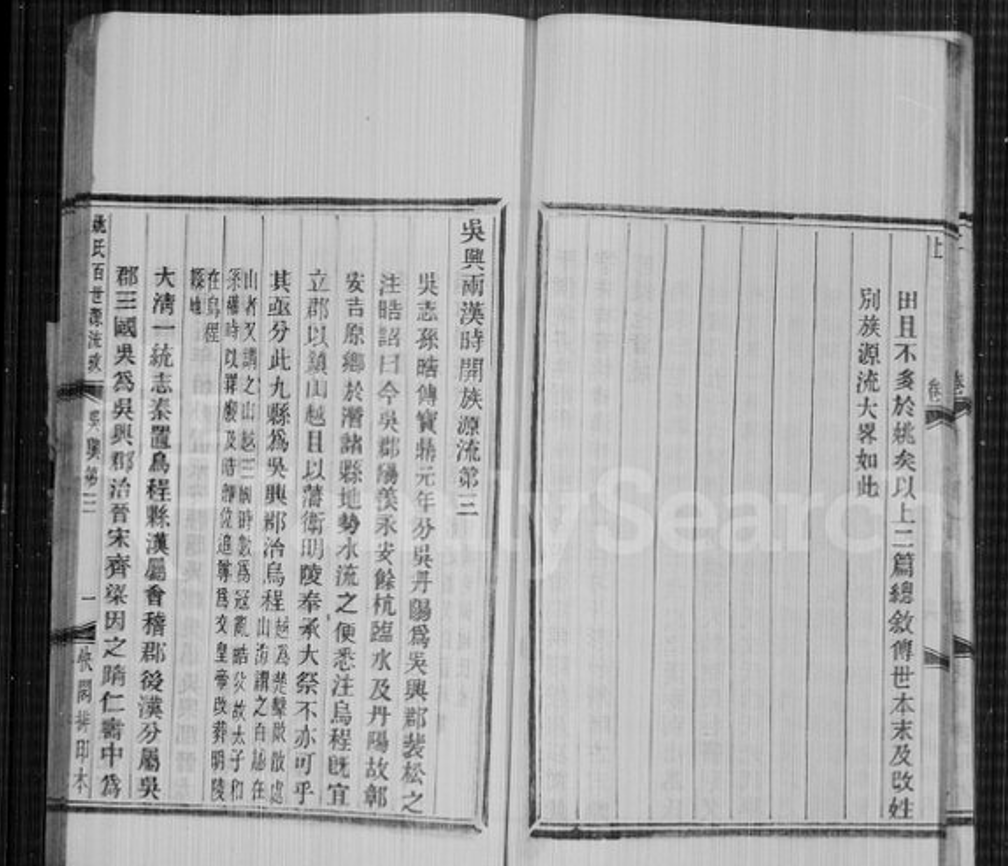 田且不多於姚矣以上二篇總敘傳世本末及改姓
別族源流大畧如此
吳興兩漢時開族源流第三
吳志孫晧傳寶鼎元年分吳丹陽爲吳興郡裴松之
注晧詔曰今吳郡陽羨永安餘杭臨水及丹陽故鄣
安吉原鄉於潛諸縣地勢水流之便悉注烏程既宜
立郡以鎮山越且以藩衛明陵奉承大祭不亦可乎
其亟分此九縣爲吳興郡治烏程越爲楚擊敗散處
山海謂之百越在
山者又謂之山越三國時數爲冠亂晧父故太子和
孫權時以罪廢及晧卽位追尊爲文皇帝改葬明陵
在烏程
縣地
大清一統志秦置烏程縣漢屬會稽郡後漢分屬吳
郡三國吳爲吳興郡治晉宋齊梁因之隋仁壽中爲
姚氏百世源流攷
吳興第三
一
閣排印本